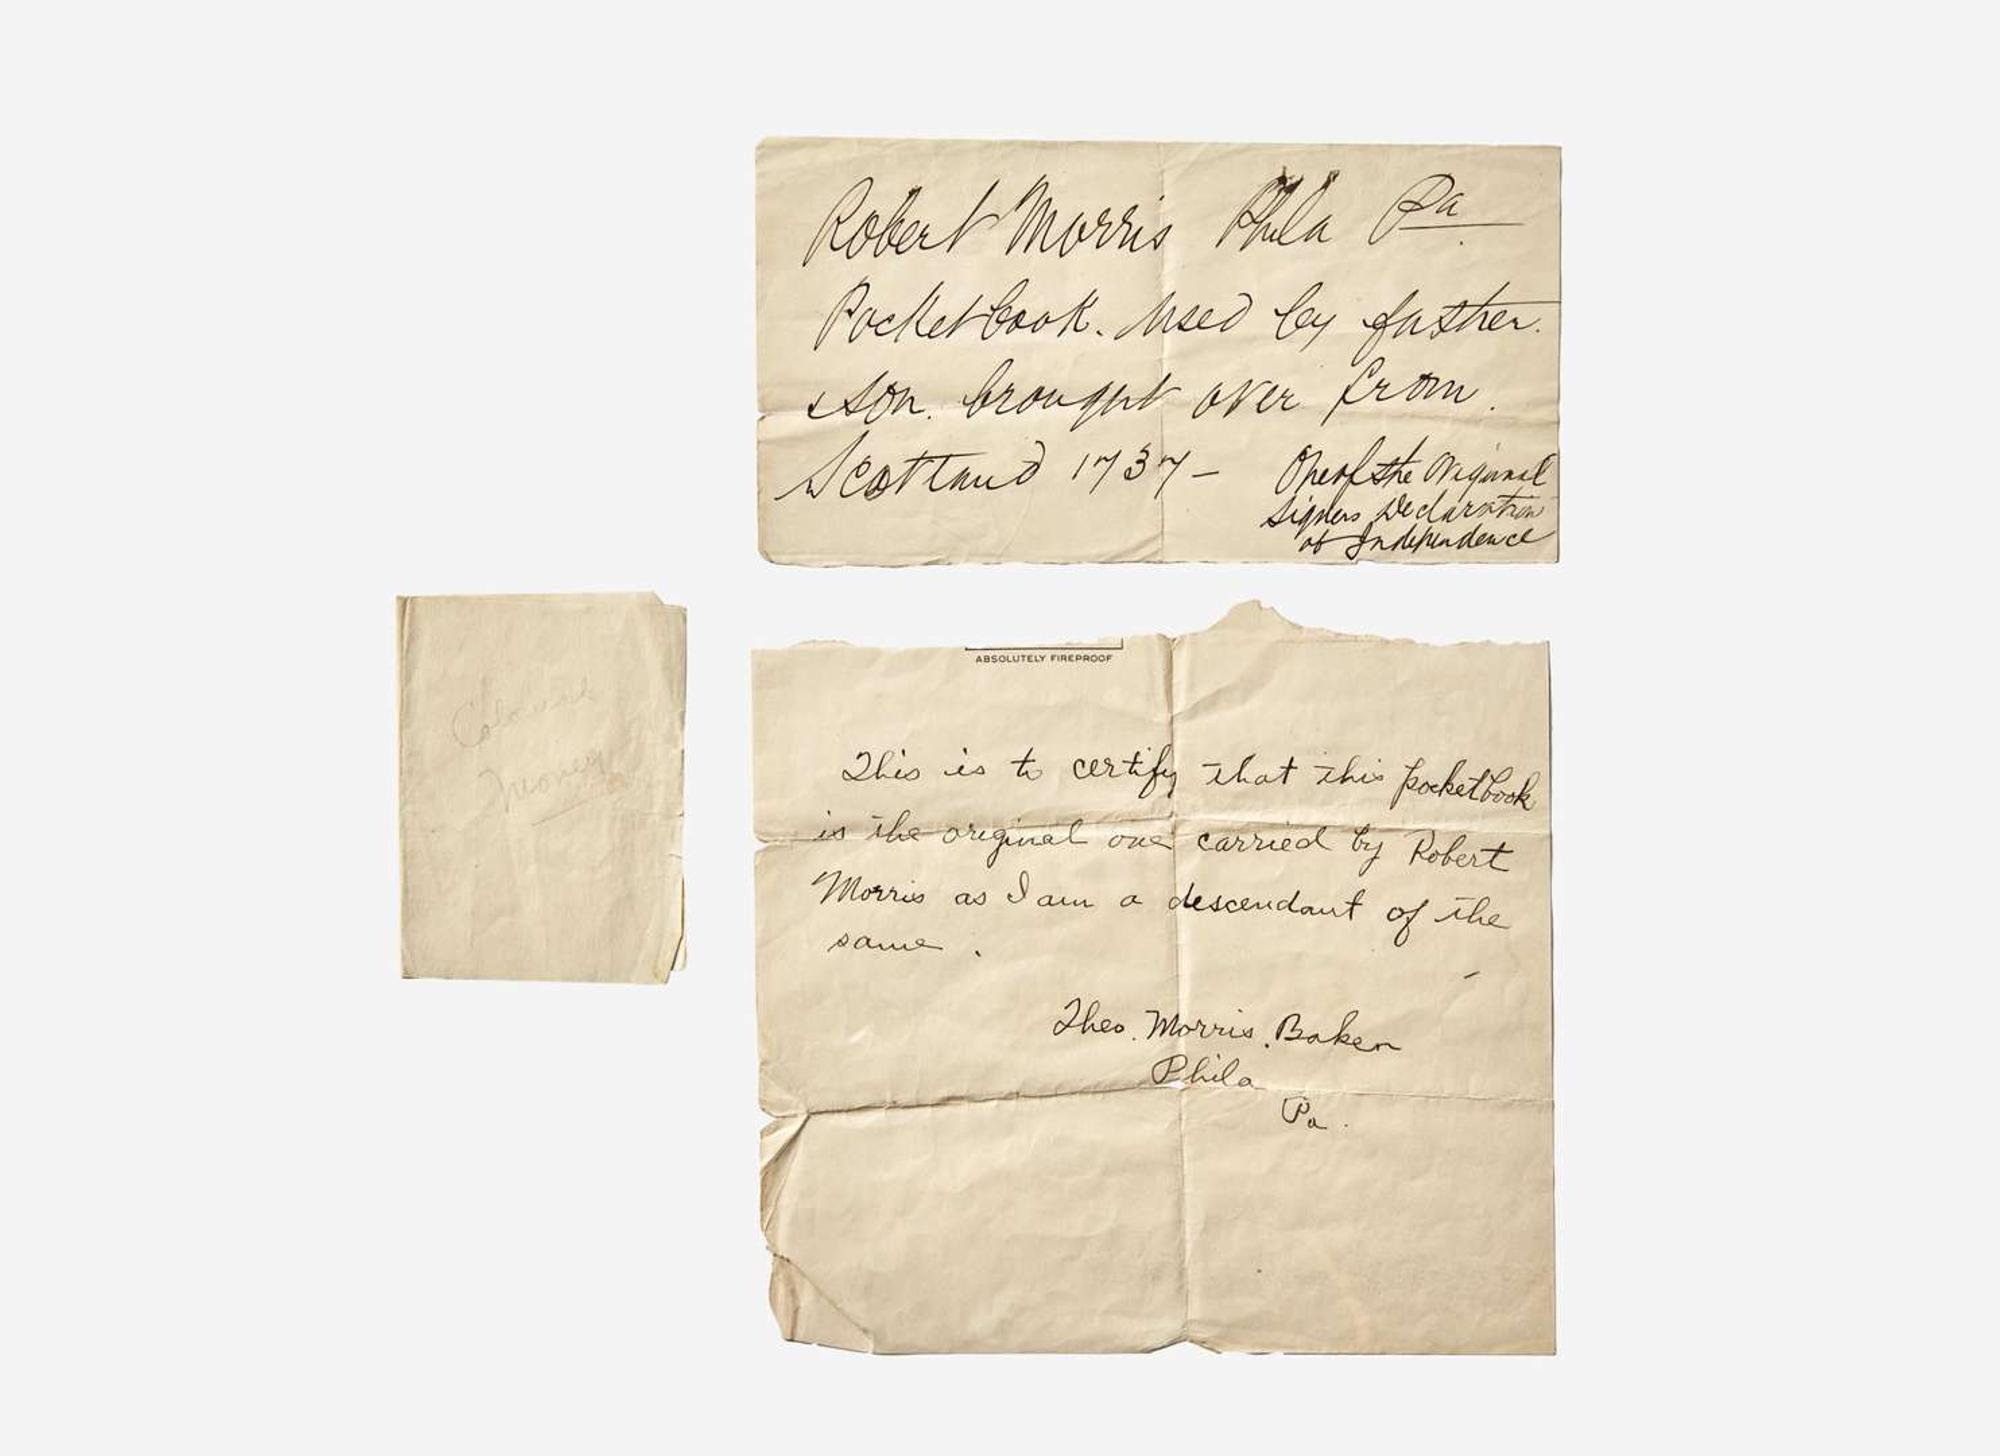 Robert Morris Phila Pa
Pocketbook. Used by father.
& son. brought over from.
Scottland 1737 –
One of the Original
signers Declaration
of Independence
Colonial
money
ABSOLUTELY FIREPROOF
This is to certify that this pocketbook
is the original one carried by Robert
Morris as I am a descendant of the
same.
Theo. Morris. Baker
Phila
Pa.